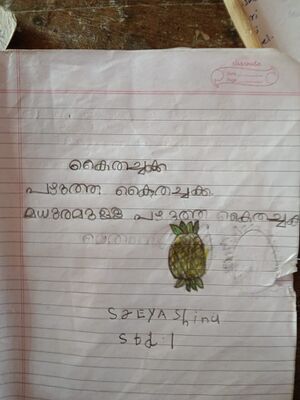 കൈതച്ചക്ക
പഴുത്ത കൈതച്ചക്ക
മധുരമുള്ള പഴുത്ത കൈതച്ചക്ക
SREYA Shinu
Std.1